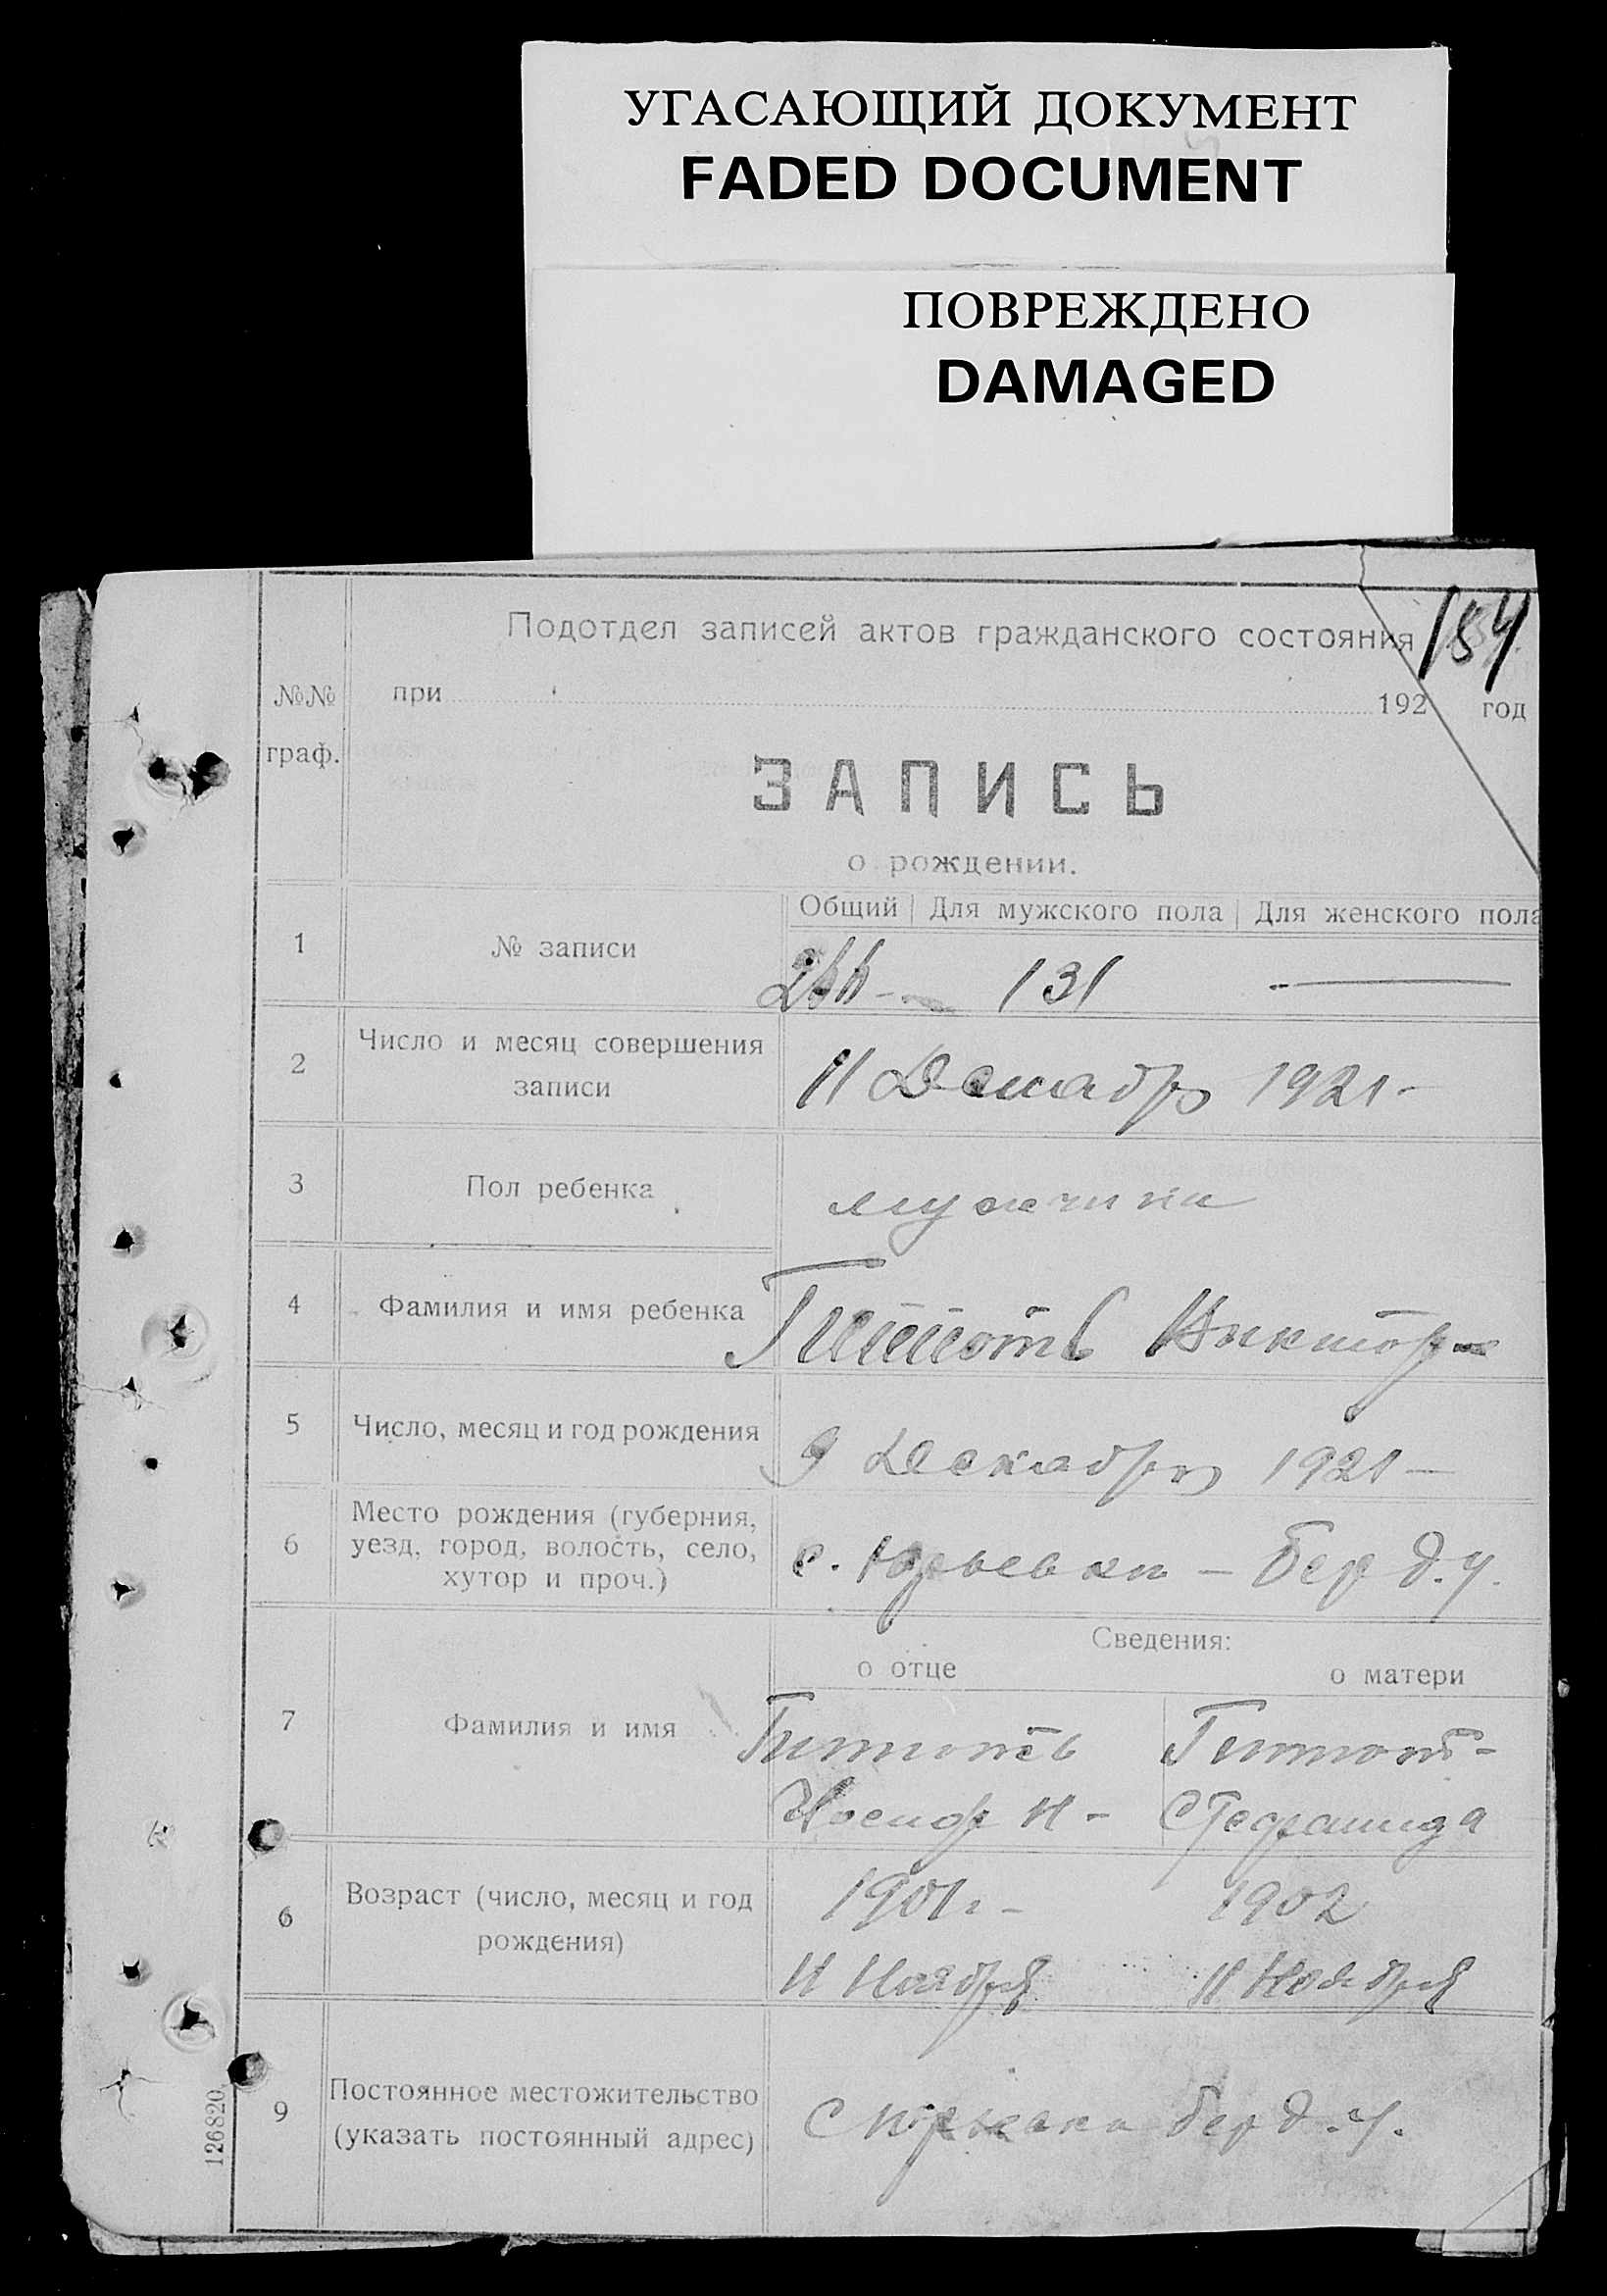 УГАСАЮЩИЙ ДОКУМЕНТ
FADED DOCUMENT
ПОВРЕЖДЕНО
DAMAGED
184
Подотдел записей актов гражданского состояния
№№ граф.
при 192 год
ЗАПИСЬ
о рождении.
Общий Для мужского пола Для женского пола
1 № записи 131 —
2 Число и месяц совершения
записи 11 Декабря 1921 -
3 Пол ребенка мужчина
4 Фамилия и имя ребенка Виктор
5 Число, месяц и год рождения 9 Декабря 1921 —
Место рождения (губерния,
6 уезд, город, волость, село, с. Юрьевка – Берд. у.
хутор и проч.)
Сведения:
о отце о матери
7 Фамилия и имя
Иосиф И-
6 Возраст (число, месяц и год 1901 г - 1902
рождения) 11 Ноября 11 Ноября
9 Постоянное местожительство с Юрьевка Берд. у.
(указать постоянный адрес)
126820